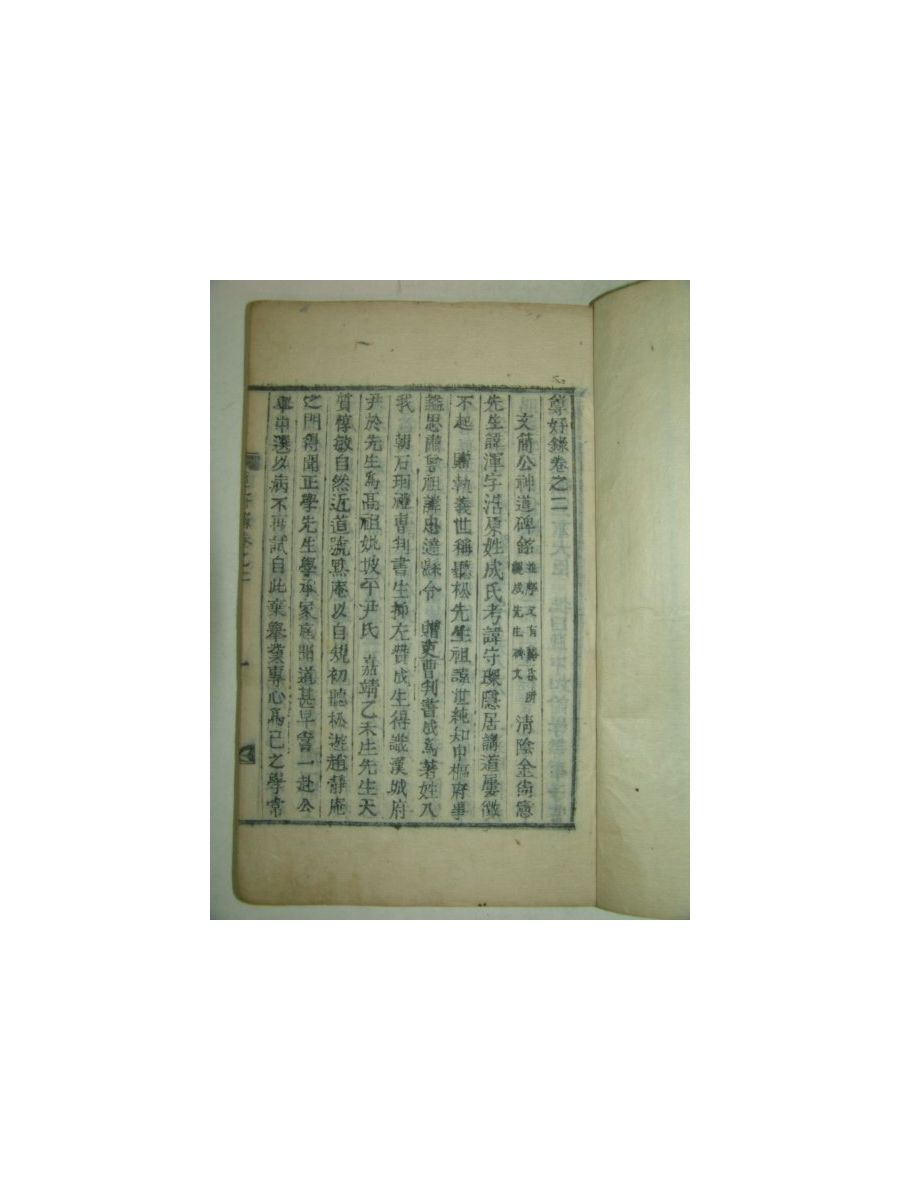 尊好錄卷之二
文簡公神道碑銘 清陰金尙憲
先生諱渾字浩原姓成氏考諱守琛隱居講道屢徵
不起 贈執義世稱聽松先生祖諱世純知中樞府事
諡思肅曾祖諱忠達縣令 贈吏曹判書成爲著姓入
我 朝石珚禮曹判書生抑左贊成生得識漢城府
尹於先生爲高祖妣坡平尹氏 嘉靖乙未生先生天
質惇敏自然近道號默庵以自規初聽松遊趙靜庵
之門得聞正學先生學承家庭聞道甚早嘗一赴公
擧中選以病不再試自此棄擧業專心爲己之學常